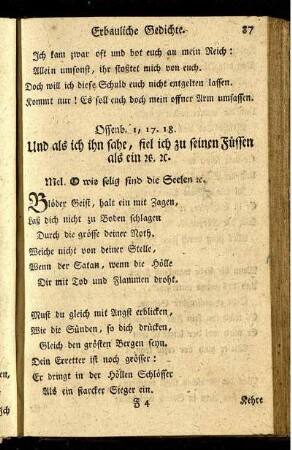 Erbauliche Gedichte. 87
Ich kam zwar oft und bot euch an mein Reich:
Allein umsonst, ihr stoßtet mich von euch.
Doch will ich diese Schuld euch nicht entgelten lassen.
Kommt nur! Es soll euch doch mein offner Arm umfassen.
Offenb. 1, 17. 18.
Und als ich ihn sahe, fiel ich zu seinen Füssen
als ein ꝛc. ꝛc.
Mel. O wie selig sind die Seelen ꝛc.
Blöder Geist, halt ein mit Zagen,
Laß dich nicht zu Boden schlagen
Durch die grösse deiner Noth.
Weiche nicht von deiner Stelle,
Wenn der Satan, wenn die Hölle
Dir mit Tod und Flammen droht.
Must du gleich mit Angst erblicken,
Wie die Sünden, so dich drücken,
Gleich den grösten Bergen seyn.
Dein Erretter ist noch grösser:
Er dringt in der Höllen Schlösser
Als ein starcker Sieger ein.
F 4 Kehre